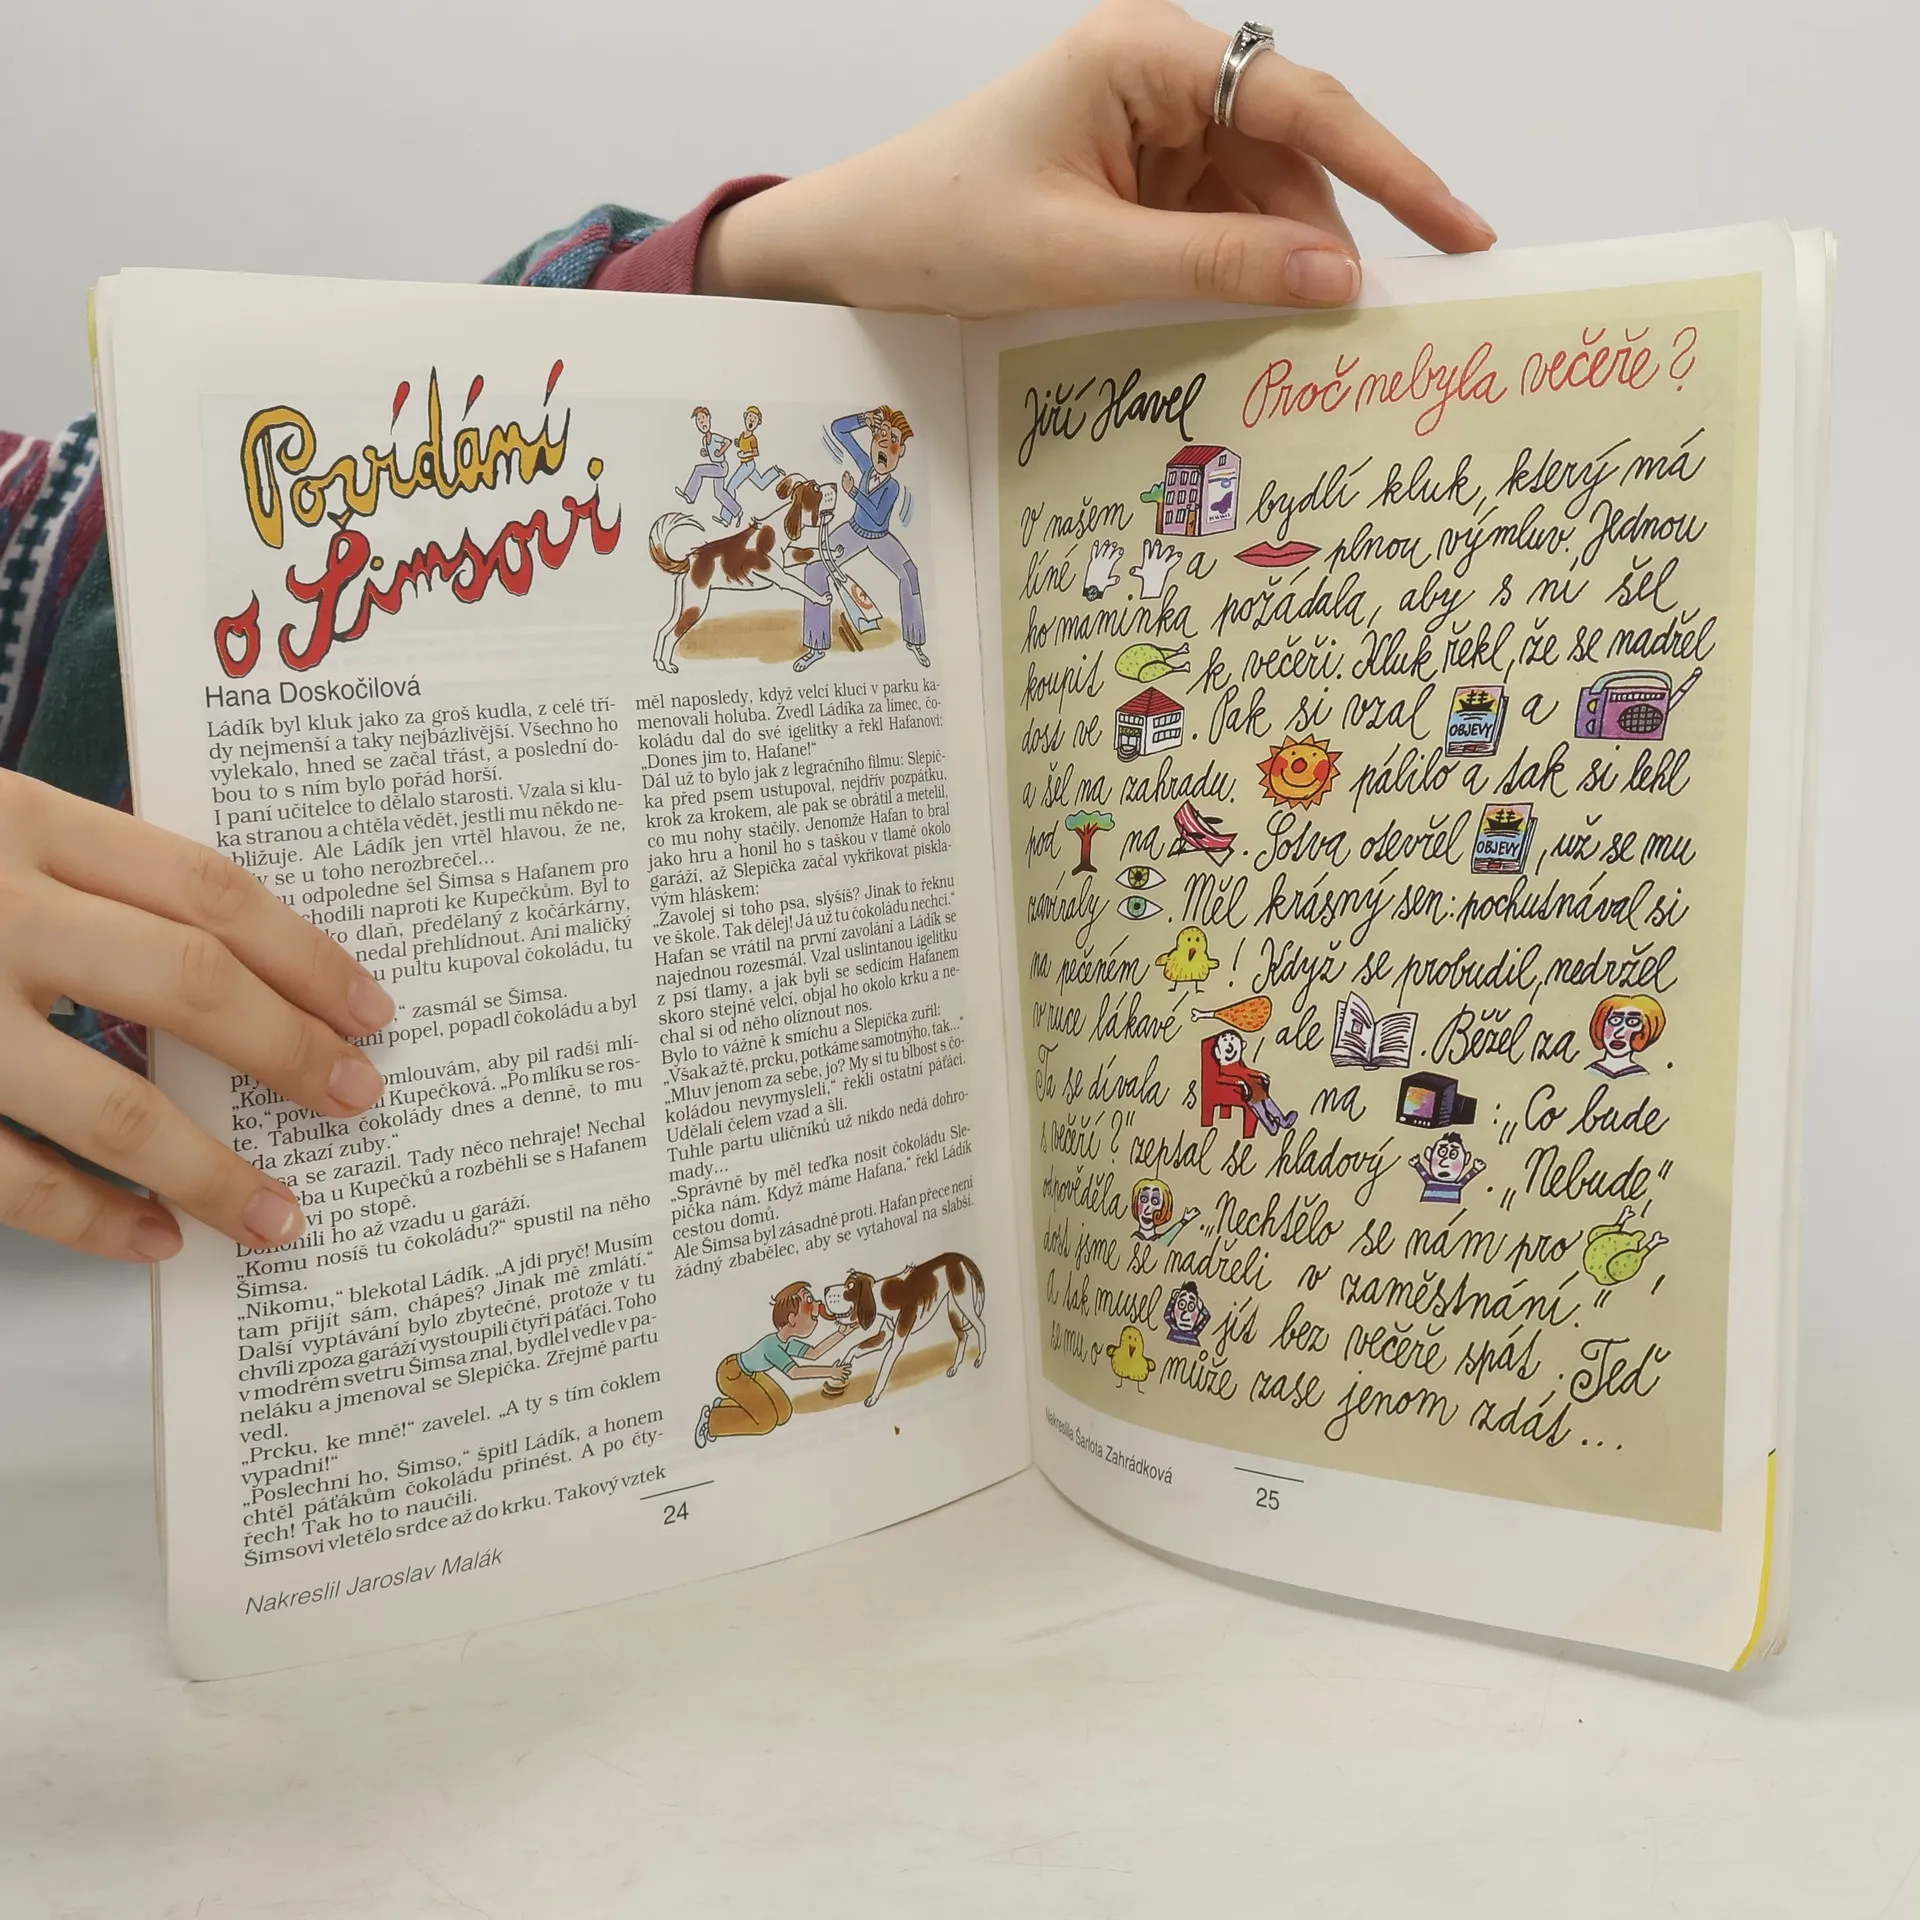 Povídání
o Šimsovi
Hana Doskočilová
Ládík byl kluk jako za groš kudla, z celé tří-
dy nejmenší a taky nejbázlivější. Všechno ho
vylekalo, hned se začal třást, a poslední do-
bou to s ním bylo pořád horší.
I paní učitelce to dělalo starosti. Vzala si klu-
ka stranou a chtěla vědět, jestli mu někdo ne-
bližuje. Ale Ládík jen vrtěl hlavou, že ne,
se u toho nerozbrečel...
odpoledne šel Šimsa s Hafanem pro
chodili naproti ke Kupečkům. Byl to
dlaň, předělaný z kočárkárny,
nedal přehlídnout. Ani maličký
pultu kupoval čokoládu, tu
“ zasmál se Šimsa.
ani popel, popadl čokoládu a byl
omlouvám, aby pil radši mlí-
ko,“ Kupečková. „Po mlíku se ros-
te. Tabulka čokolády dnes a denně, to mu
zkazí zuby.“
se zarazil. Tady něco nehraje! Nechal
u Kupečků a rozběhli se s Hafanem
po stopě.
ho až vzadu u garáží.
„Komu nosíš tu čokoládu?“ spustil na něho
Šimsa.
„Nikomu,“ blekotal Ládík. „A jdi pryč! Musím
tam přijít sám, chápeš? Jinak mě zmlátí.“
Další vyptávání bylo zbytečné, protože v tu
chvíli zpoza garáží vystoupili čtyři páťáci. Toho
v modrém svetru Šimsa znal, bydlel vedle v pa-
neláku a jmenoval se Slepička. Zřejmě partu
vedl.
„Prcku, ke mně!“ zavelel. „A ty s tím čoklem
vypadni!“
„Poslechni ho, Šimso,“ špitl Ládík, a honem
chtěl páťákům čokoládu přinést. A po čty-
řech! Tak ho to naučili.
Šimsovi vletělo srdce až do krku. Takový vztek
měl naposledy, když velcí kluci v parku ka-
menovali holuba. Zvedl Ládíka za límec, čo-
koládu dal do své igelitky a řekl Hafanovi:
„Dones jim to, Hafane!“
Dál už to bylo jak z legračního filmu: Slepič-
ka před psem ustupoval, nejdřív pozpátku,
krok za krokem, ale pak se obrátil a metelil,
co mu nohy stačily. Jenomže Hafan to bral
jako hru a honil ho s taškou v tlamě okolo
garáží, až Slepička začal vykřikovat piskla-
vým hláskem:
„Zavolej si toho psa, slyšíš? Jinak to řeknu
ve škole. Tak dělej! Já už tu čokoládu nechci.“
Hafan se vrátil na první zavolání a Ládík se
najednou rozesmál. Vzal uslintanou igelitku
z psí tlamy, a jak byli se sedícím Hafanem
skoro stejně velcí, objal ho okolo krku a ne-
chal si od něho olíznout nos.
Bylo to vážně k smíchu a Slepička zuřil:
„Však až tě, prcku, potkáme samotnýho, tak...“
„Mluv jenom za sebe, jo? My si tu blbost s čo-
koládou nevymysleli,“ řekli ostatní páťáci.
Udělali čelem vzad a šli.
Tuhle partu uličníků už nikdo nedá dohro-
mady...
„Správně by měl teďka nosit čokoládu Sle-
pička nám. Když máme Hafana,“ řekl Ládík
cestou domů.
Ale Šimsa byl zásadně proti. Hafan přece není
žádný zbabělec, aby se vytahoval na slabší.
24
Nakreslil Jaroslav Malák
Jiří Havel Proč nebyla večeře?
V našem bydlí kluk, který má
líné a plnou výmluv. Jednou
ho maminka požádala, aby s ní šel
koupit k večeři. Kluk řekl, že se nadřel
dost ve . Pak si vzal OBJEVY a
a šel na zahradu. pálilo a tak si lehl
pod na . Sotva otevřel OBJEVY, už se mu
zavíraly . Měl krásný sen: pochutnával si
na pečeném ! Když se probudil, nedržel
v ruce lákavé , ale . Běžel za .
Ta se dívala s na : „Co bude
s večeří?“ zeptal se hladový . „Nebude,“
odpověděla . „Nechtělo se nám pro ,
dost jsme se nadřeli v zaměstnání.“
A tak musel jít bez večeře spát. Teď
se mu o může zase jenom zdát...
Nakreslila Šarlota Zahrádková
25